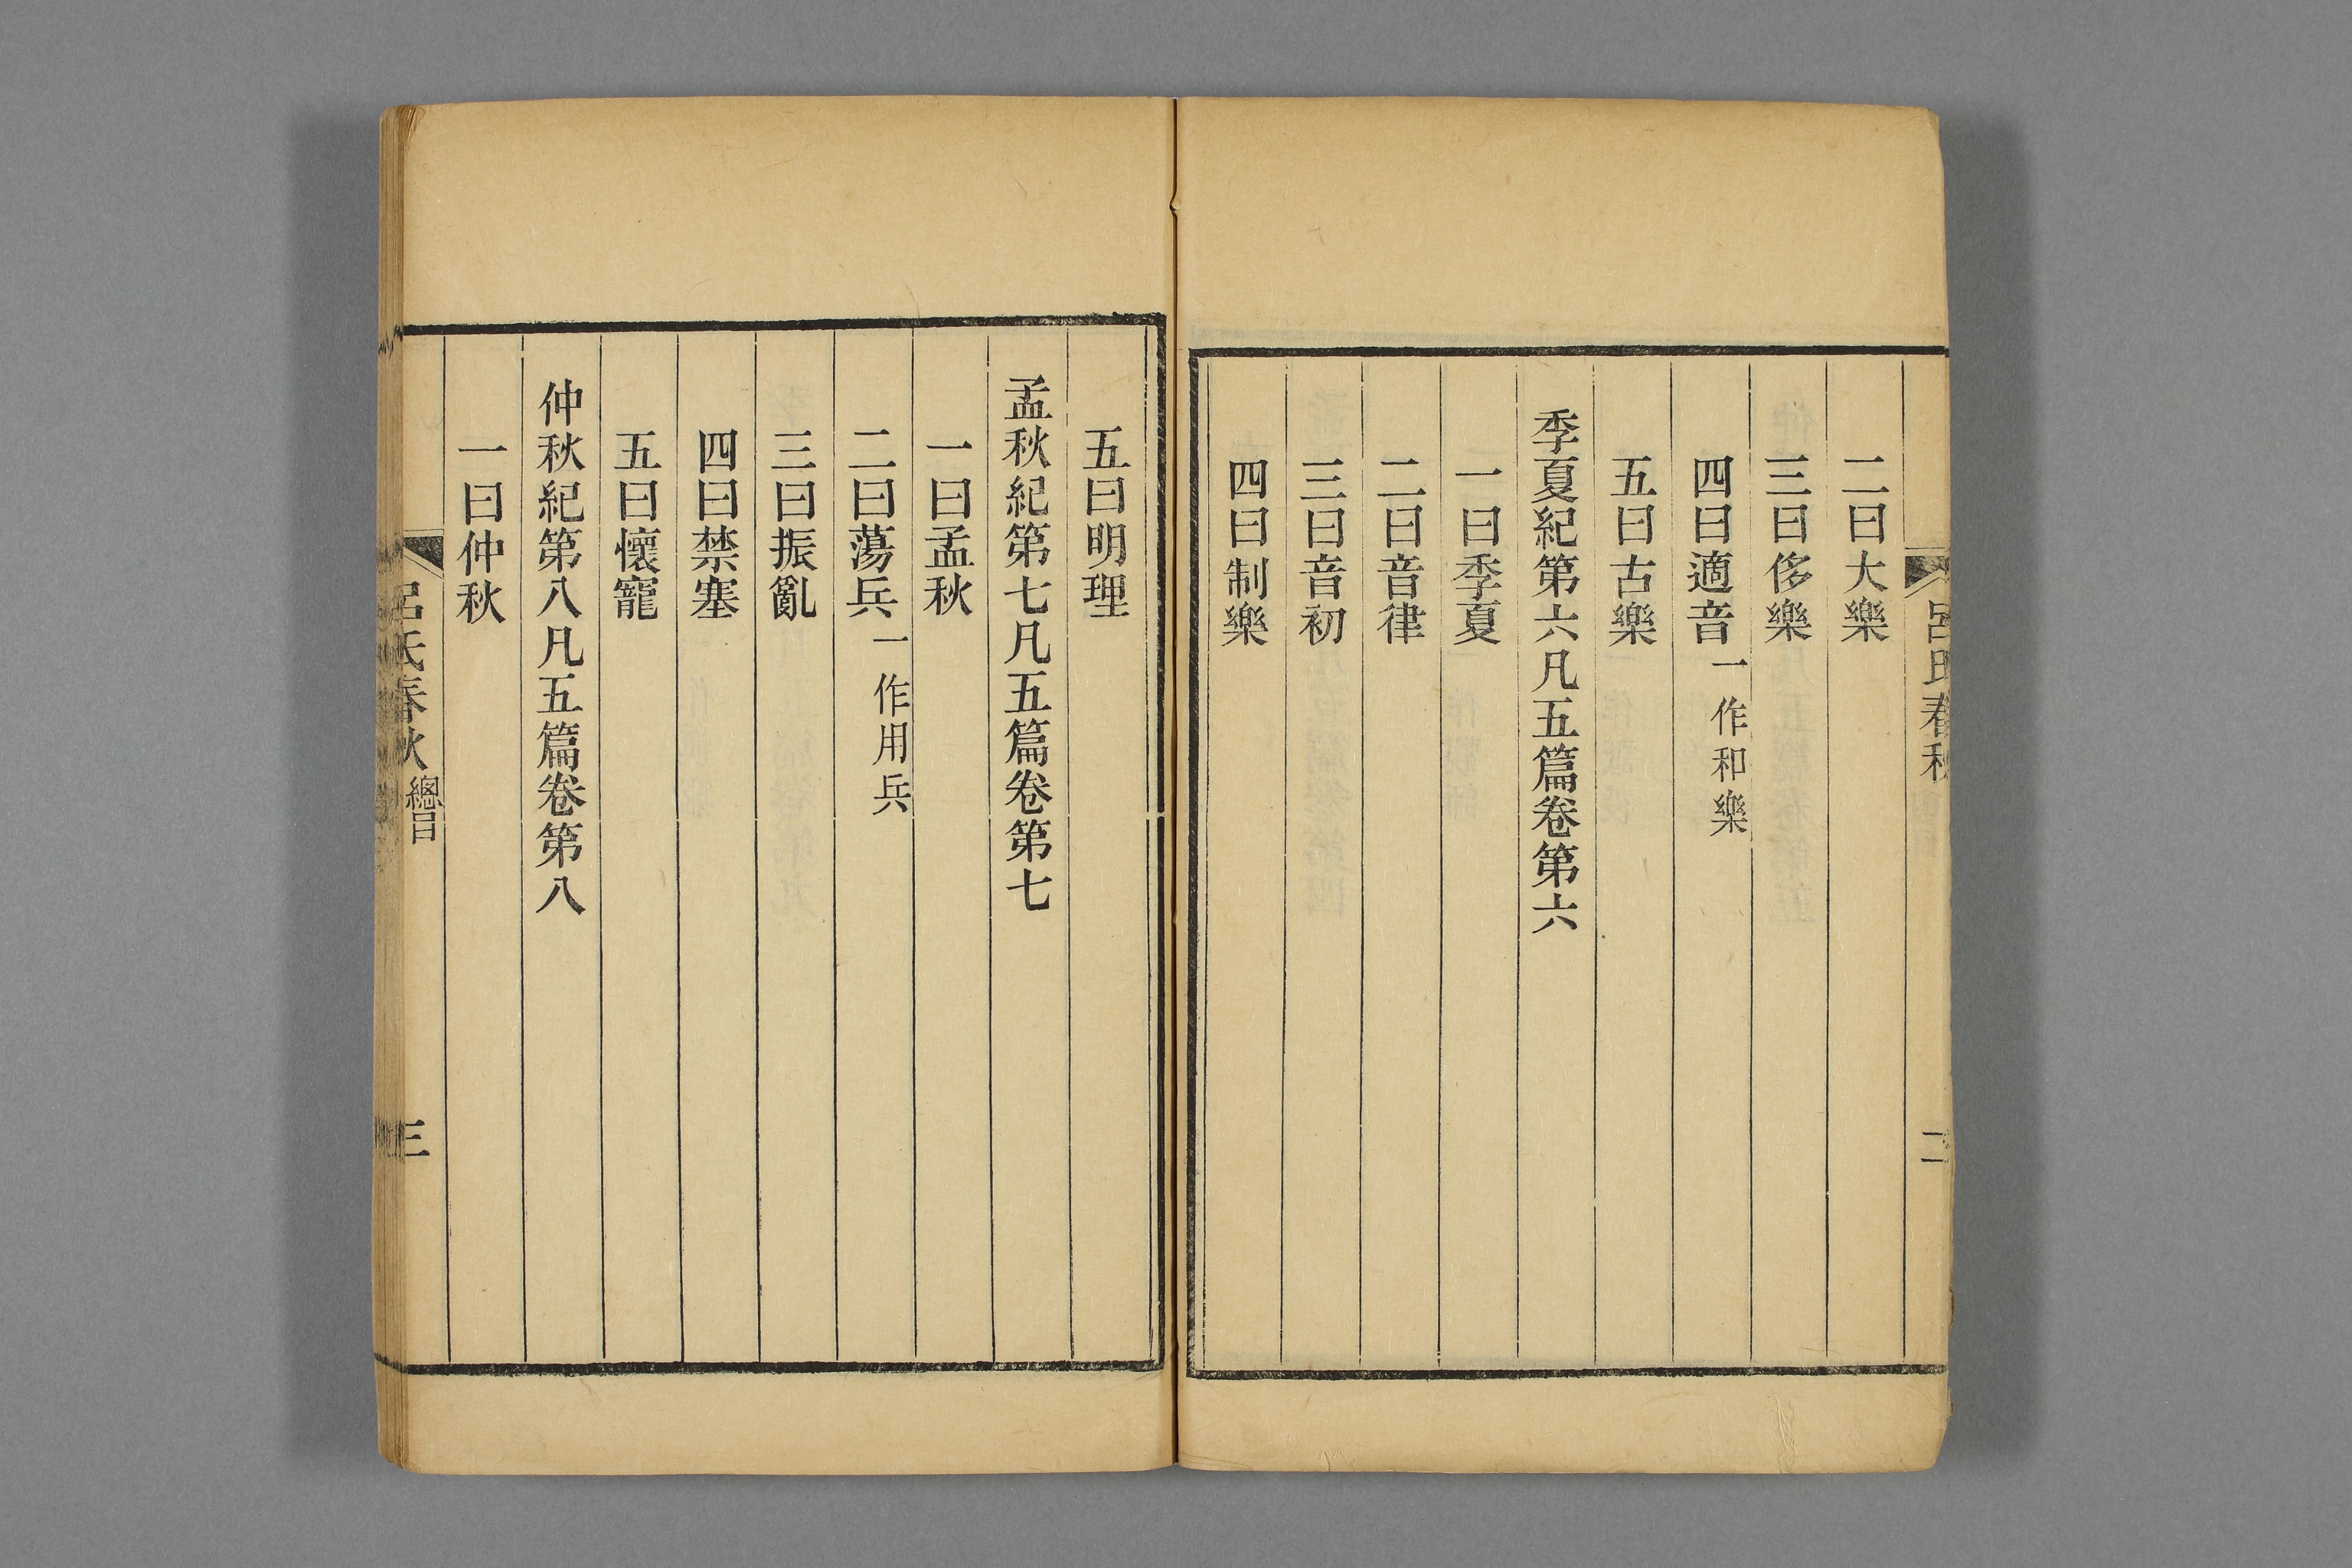 呂氏春秋
二
二曰大樂
三曰侈樂
四曰適音一作和樂
五曰古樂
季夏紀第六凡五篇卷第六
一曰季夏
二曰音律
三曰音初
四曰制樂
五曰明理
孟秋紀第七凡五篇卷第七
一曰孟秋
二曰蕩兵一作用兵
三曰振亂
四曰禁塞
五曰懷寵
仲秋紀第八凡五篇卷第八
一曰仲秋
呂氏春秋總目
三